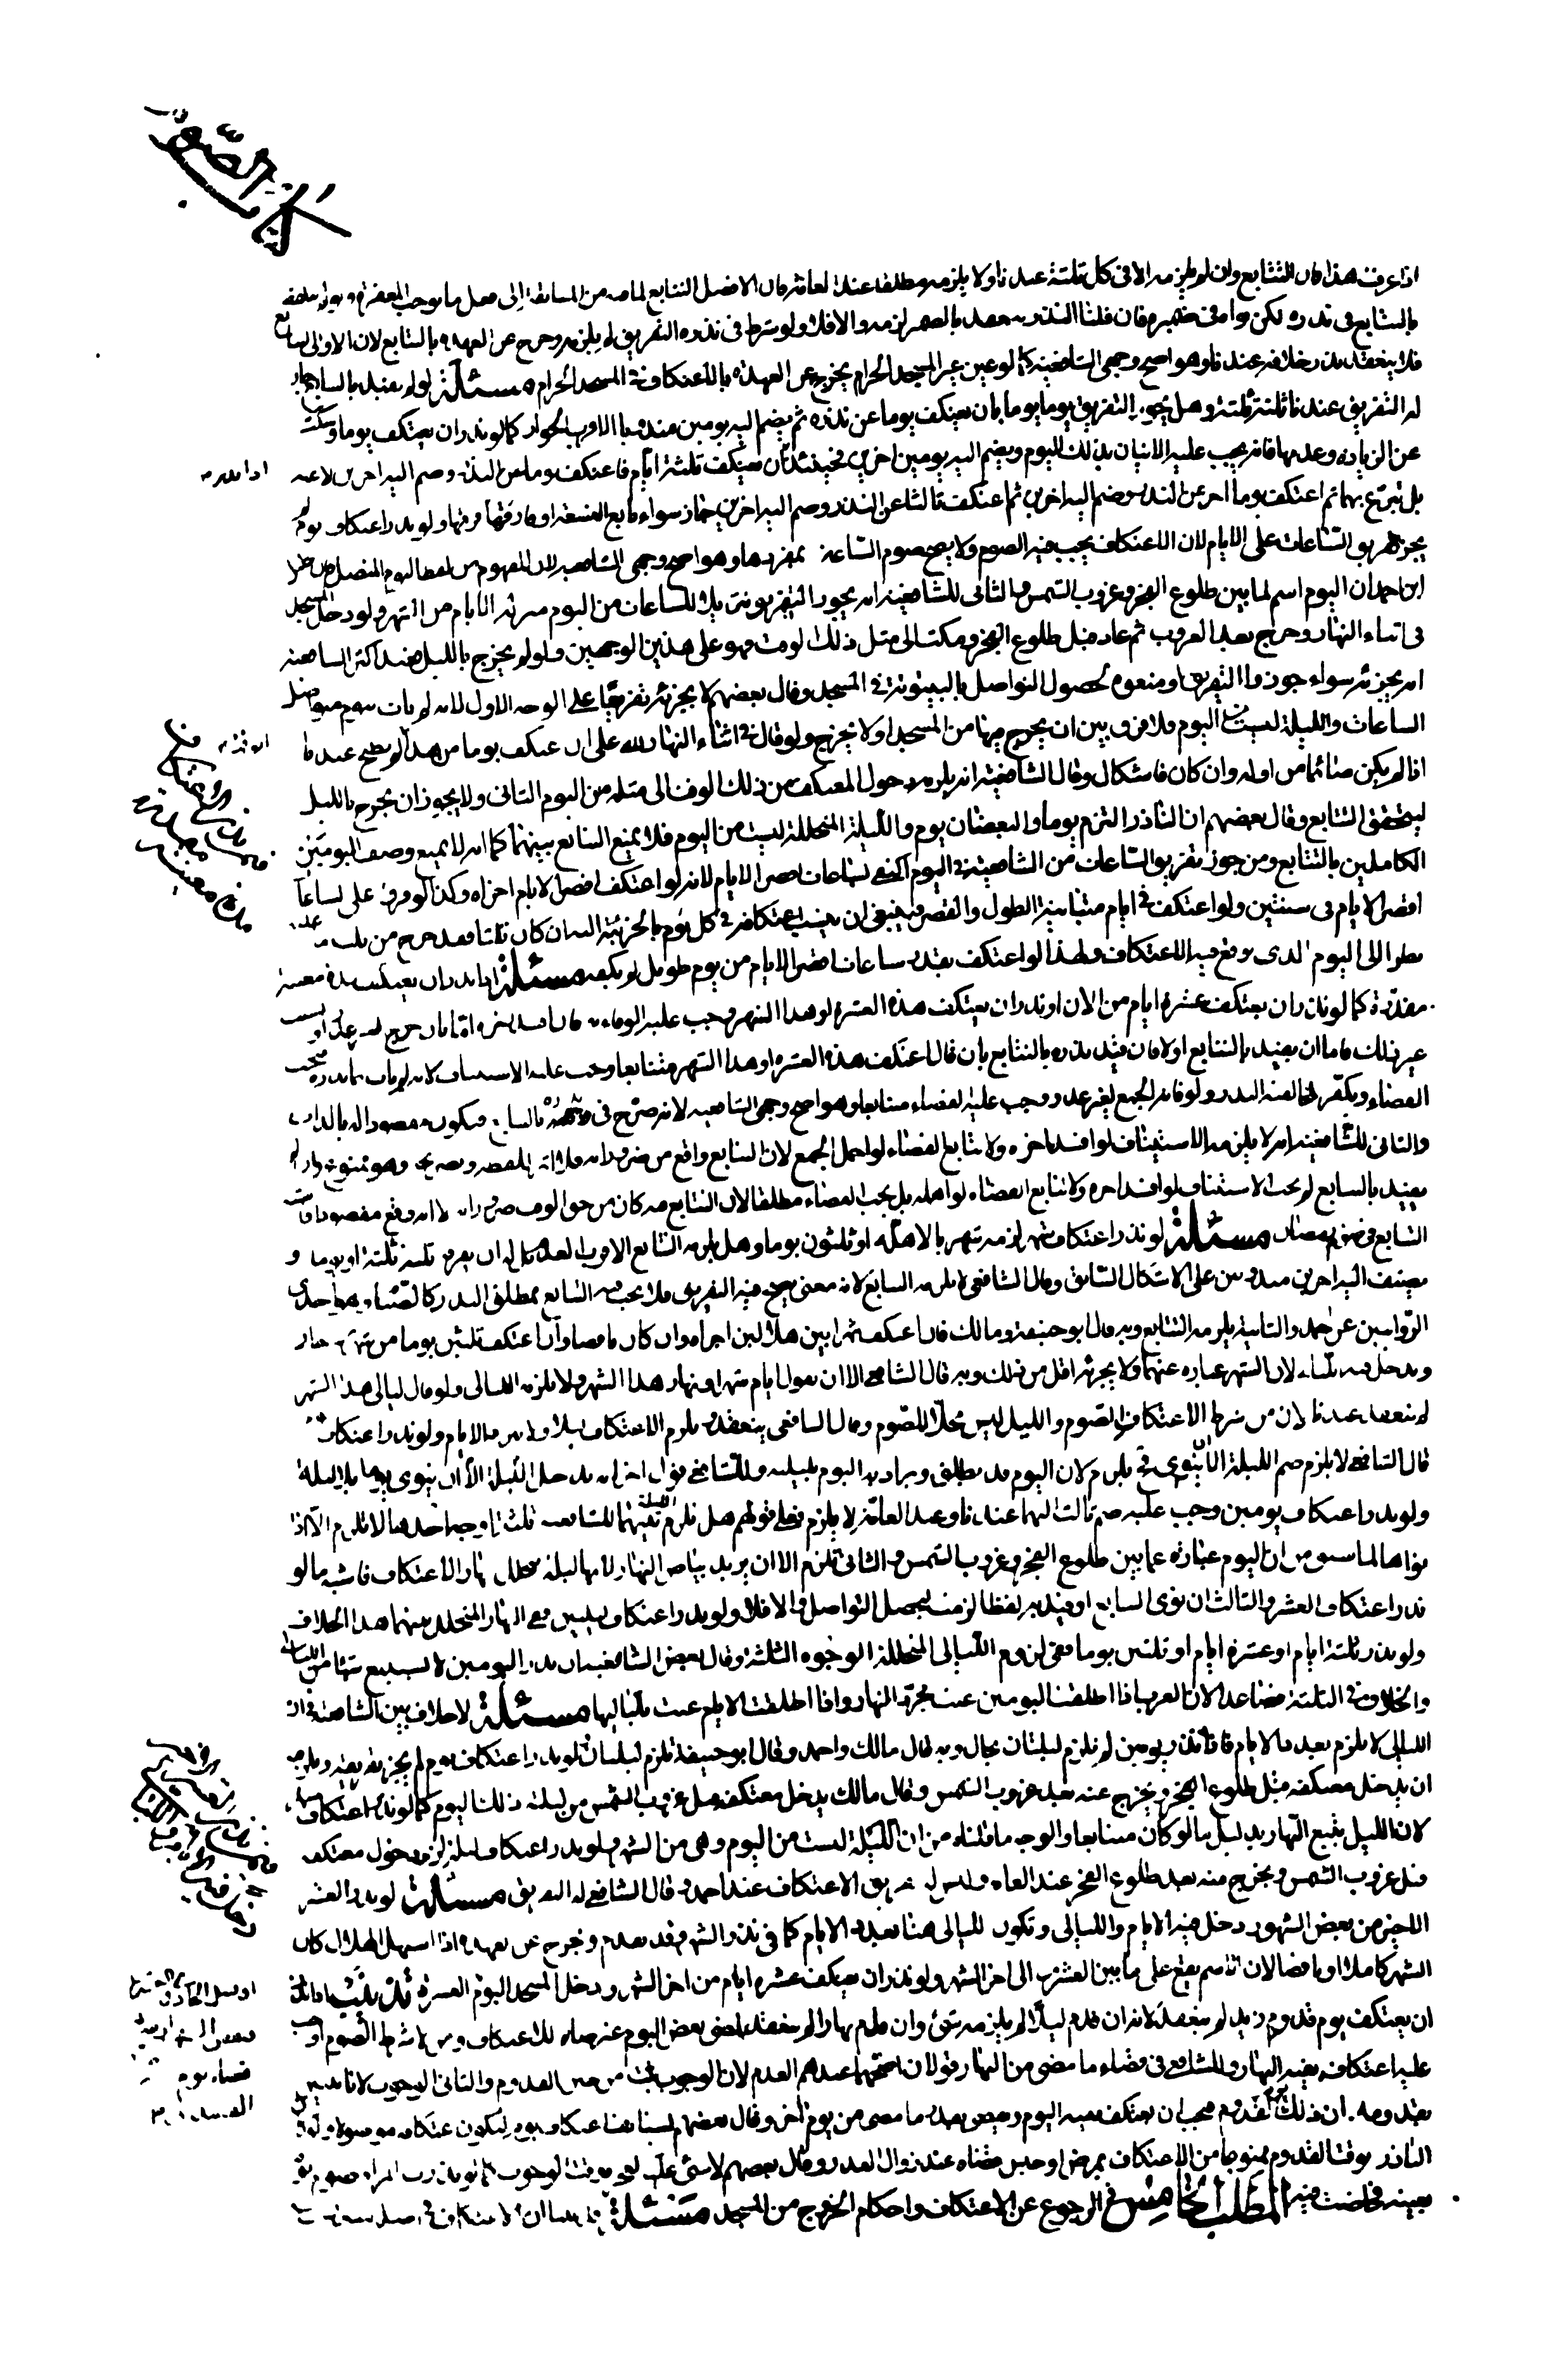 كتاب الصوم
اذا عرفت هذا فان التتابع وان لم يلزمه الا في كل ثلثة عندنا ولا يلزمه مطلقا عند العامة فان الافضل التتابع لما فيه من المسابقة الى فعل ما يوجب المغفرة
بالتتابع في نذره لكن نواه في ضميره فان قلنا النذر ينعقد بالضمير لزمه والا فلا ولو شرط في نذره التفريق لم يلزمه وخرج عن العهدة بالتتابع لان الاولى
فلا ينعقد نذر خلافه عندنا وهو اصح وجهي الشافعية كما لو عين غير المسجد الحرام يخرج عن العهدة بالاعتكاف في المسجد الحرام مسئلة لو لم يقيد بالتتابع جاز
له التفريق عندنا ثلثة ثلثة وهل يجوز التفريق يوما يوما بان يعتكف يوما عن نذره ثم يضم اليه يومين مندوبا الاقرب الجواز كما لو نذر ان يعتكف يوما وسكت
عن الزيادة وعدمها فانه يجب عليه الاتيان بذلك اليوم ويضم اليه يومين اخرين فحينئذ اذا نذر ان يعتكف ثلثة ايام فاعتكف يوما من النذر وضم اليه اخرين لا عنه
بل تبرع بهما ثم اعتكف يوما اخر عن النذر وضم اليه اخرين ثم اعتكف ثالثا عن النذر وضم اليه اخرين جاز سواء تابع التسعة او فرقها ولو نذر اعتكاف يوم لم
يجز تفريق الساعات على الايام لان الاعتكاف يجب فيه الصوم ولا يصح صوم الساعة بمفردها وهو اصح وجهي الشافعية لان المفهوم من لفظ اليوم المتصل
ابن احمد ان اليوم اسم لما بين طلوع الفجر وغروب الشمس والثاني للشافعية انه يجوز التفريق تنزيلا للساعات من اليوم منزلة الايام من الشهر ولو دخل المسجد
في اثناء النهار وخرج بعد الغروب ثم عاد قبل طلوع الفجر ومكث الى مثل ذلك الوقت فهو على هذين الوجهين ولو لم يخرج بالليل فعند اكثر الشافعية
انه يجزئه سواء جوزوا التفريق او منعوه لحصول التواصل بالبيتوتة في المسجد وقال بعضهم لا يجزئه تفريعا على الوجه الاول لانه لم يات بيوم متواصل
الساعات والليلة ليست من اليوم فلا فرق بين ان يخرج فيها من المسجد او لا يخرج ولو قال في اثناء النهار لله على ان اعتكف يوما من هذا الوقت لم يصح عندنا
اذا لم يكن صائما من اوله وان كان فاشكال وقال الشافعية انه يلزمه دخول المعتكف من ذلك الوقت الى مثله من اليوم الثاني ولا يجوز ان يخرج بالليل
ليتحقق التتابع وقال بعضهم ان الناذر التزم يوما والبعضان يوم والليلة المتخللة ليست من اليوم فلا يمنع التتابع بينهما كما انه لا يمنع وصف اليومين
الكاملين بالتتابع ومن جوز تفريق الساعات من الشافعية في اليوم اكتفى بساعات اقصر الايام لانه لو اعتكف اقصر الايام اجزاه وكذا لو فرق على ساعات
اقصر الايام في سنتين ولو اعتكف في ايام متباينة الطول والقصر فينبغي ان ينسب اعتكافه في كل يوم بالجزئية اليه ان كان ثلثا فقد خرج من ثلث ما عليه
نظرا الى اليوم الذي يوقع فيه الاعتكاف ولهذا لو اعتكف بقدر ساعات اقصر الايام من يوم طويل لم يكفه مسئلة اذا نذر ان يعتكف مدة معينة
مقدرة كما لو نذر ان يعتكف عشرة ايام من الان او نذر ان يعتكف هذه العشرة او هذا الشهر وجب عليه الوفاء به فان افسده
غير ذلك فاما ان يقيد بالتتابع او لا فان قيد نذره بالتتابع بان قال اعتكف هذه العشرة او هذا الشهر متتابعا وجب عليه الاستيناف لانه لم يات بما نذره فيجب
القضاء ويكفر لمخالفة النذر ولو فاته الجميع لغير عذر وجب عليه القضاء متتابعا وهو اصح وجهي الشافعية لانه صرح في نذره بالتتابع فيكون مقصودا له بالذات
والثاني للشافعية انه لا يلزمه الاستيناف لو افسد اخره ولا تتابع القضاء لو اهمل الجميع لان التتابع واقع من ضروراته فلا اثر للفظه وقصده وهو ممنوع وان لم
يقيد بالتتابع لم يجب الاستيناف لو افسد اخره ولا تتابع القضاء لو اهمله بل يجب القضاء مطلقا لان التتابع فيه كان من حق الوقت وضروراته لا انه وقع مقصودا
التتابع في صوم رمضان مسئلة لو نذر اعتكاف شهر لزمه شهر بالاهلة او ثلثون يوما وهل يلزمه التتابع الاقرب العدم بل له ان يفرقه ثلثة ثلثة او يوما و
يضيف اليه اخرين مندوبين على الاشكال السابق وقال الشافعي لا يلزمه التتابع لانه معنى يصح فيه التفريق فلا يجب فيه التتابع بمطلق النذر كالصيام وهو احدى
الروايتين عن احمد والثانية يلزمه التتابع وبه قال ابو حنيفة ومالك فان اعتكف شهرا بين هلالين اجزاه وان كان ناقصا وان اعتكف ثلثين يوما من شهرين جاز
ويدخل فيه لياليه لان الشهر عبارة عنهما ولا يجزئه اقل من ذلك وبه قال الشافعي الا ان يقول ايام شهر او نهار هذا الشهر فلا يلزمه الليالي ولو قال ليالي هذا الشهر
لم ينعقد عندنا لان من شرط الاعتكاف الصوم والليل ليس محلا للصوم وقال الشافعي ينعقد ويلزم الاعتكاف ليلا ولا يلزمه الايام ولو نذر اعتكاف يوم
قال الشافعي لا يلزم ضم الليلة الا ان ينوي فيلزم لان اليوم قد يطلق ويراد به اليوم بليلته وللشافعي قول اخر انه يدخل الليلة الا ان ينوي يوما بلا ليلة
ولو نذر اعتكاف يومين وجب عليه ضم ثالث اليهما عندنا وعند العامة لا يلزم فعلى قولهم هل يلزم الليلة بينهما للشافعية ثلثة اوجه احدها لا تلزم الا اذا
نواها لما سبق من ان اليوم عبارة عما بين طلوع الفجر وغروب الشمس والثاني تلزم الا ان يريد بياض النهار لانها ليلة تتخلل نهار الاعتكاف فاشبه ما لو
نذر اعتكاف العشر والثالث ان نوى التتابع او قيد به لفظا لزمت ليحصل التواصل والا فلا ولو نذر اعتكاف ليلتين ففي النهار المتخلل بينهما هذا الخلاف
ولو نذر ثلثة ايام او عشرة ايام او ثلثين يوما ففي لزوم الليالي المتخللة الوجوه الثلثة وقال بعض الشافعية ان نذر اليومين لا يستتبع شيئا من الليالي
والخلاف في الثلثة فصاعدا لان العرب اذا اطلقت اليومين عنت مجرد النهار واذا اطلقت الايام عنت بلياليها مسئلة لا خلاف بين الشافعية في ان
الليالي لا تلزم بعدد الايام فاذا نذر يومين لم تلزم ليلتان بحال وبه قال مالك واحمد وقال ابو حنيفة تلزم ليلتان ولو نذر اعتكاف يوم لم يجز تفريقه ويلزمه
ان يدخل معتكفه قبل طلوع الفجر ويخرج عنه بعد غروب الشمس وقال مالك يدخل معتكفه قبل غروب الشمس من ليلة ذلك اليوم كما لو نذر اعتكاف شهر
لان الليل يتبع النهار بدليل ما لو كان متتابعا والوجه ما قلناه من ان الليلة ليست من اليوم وهي من الشهر ولو نذر اعتكاف ليلة لزمه دخول معتكفه
قبل غروب الشمس ويخرج منه بعد طلوع الفجر عند العامة وليس له تفريق الاعتكاف عند احمد وقال الشافعي له التفريق مسئلة لو نذر العشر
الاخير من بعض الشهور دخل فيه الايام والليالي وتكون الليالي هنا بعدد الايام كما في نذر الشهر وقد تقدم وخرج عن العهدة اذا استهل الهلال كان
الشهر كاملا او ناقصا لان الاسم يقع على ما بين العشرين الى اخر الشهر ولو نذر ان يعتكف عشرة ايام من اخر الشهر ودخل المسجد اليوم العشرين
ان يعتكف يوم قدوم زيد لم ينعقد لانه ان قدم ليلا لم يلزمه شئ وان قدم نهارا لم ينعقد لمضي بعض اليوم غير صائم للاعتكاف ومن لا يشترط الصوم اوجب
عليه اعتكاف بقية النهار وللشافعي في قضاء ما مضى من النهار قولان اصحهما عندهم العدم لان الوجوب ثبت من حين القدوم والثاني الوجوب لانا نتبين
بقدومه ان ذلك يوم القدوم فيجب ان يعتكف بقية اليوم ويقضي بقدر ما مضى من يوم اخر وقال بعضهم يستانف اعتكاف يوم ليكون اعتكافه موصولا ولو كان
الناذر وقت القدوم ممنوعا من الاعتكاف بمرض او حبس قضاه عند زوال العذر وقال بعضهم لا شئ عليه لعجزه وقت الوجوب كما لو نذرت المراة صوم يوم
بعينه فحاضت فيه المطلب الخامس في الرجوع عن الاعتكاف واحكام الخروج من المسجد مسئلة قد بينا ان الاعتكاف في اصله